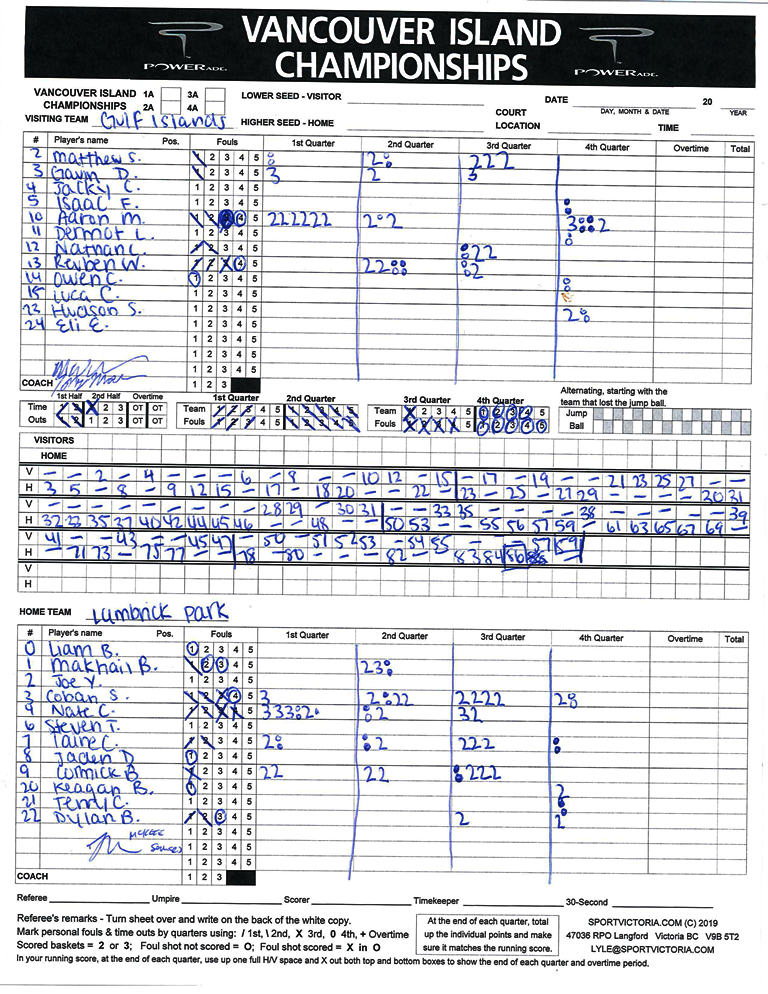 VANCOUVER ISLAND
CHAMPIONSHIPS
POWERADE
POWERADE
VANCOUVER ISLAND 1A 3A LOWER SEED - VISITOR DATE 20
CHAMPIONSHIPS 2A 4A COURT DAY, MONTH & DATE YEAR
VISITING TEAM Gulf Islands HIGHER SEED - HOME LOCATION TIME
# Player's name Pos. Fouls 1st Quarter 2nd Quarter 3rd Quarter 4th Quarter Overtime Total
2 Matthew S. 1 2 3 4 5 2 222
3 Gavin D. 1 2 3 4 5 3 2 3
4 Jacky C. 1 2 3 4 5
5 Isaac F. 1 2 3 4 5
10 Aaron M. 1 2 3 4 5 222222 2 2 3 2
11 Dermot L. 1 2 3 4 5
12 Nathan C. 1 2 3 4 5 22
13 Reuben W. 1 2 3 4 5 22 2
14 Owen C. 1 2 3 4 5
15 Luca C. 1 2 3 4 5
23 Hudson S. 1 2 3 4 5 2
24 Eli E. 1 2 3 4 5
1 2 3 4 5
1 2 3 4 5
1 2 3 4 5
COACH 1 2 3
1st Half 2nd Half Overtime 1st Quarter 2nd Quarter 3rd Quarter 4th Quarter Alternating, starting with the
team that lost the jump ball.
Time 1 2 3 OT OT Team 1 2 3 4 5 1 2 3 4 5 Team 1 2 3 4 5 1 2 3 4 5 Jump
Outs 1 2 3 OT OT Fouls 1 2 3 4 5 1 2 3 4 5 Fouls 1 2 3 4 5 1 2 3 4 5 Ball
VISITORS
HOME
V - - 2 - 4 - - - 6 - 8 - - 10 12 - 15 - 17 - 19 - - 21 23 25 27 - -
H 3 5 - 8 - 9 12 15 - 17 - 18 20 - - 22 - 23 - 25 - 27 29 - - - - 30 31
V - - - - - - - - - 28 29 - 30 31 - - 33 35 - - - - 38 - - - - - 39
H 32 33 35 37 40 42 44 45 46 - - 48 - - 50 53 - - 55 56 57 59 - 61 63 65 67 69 -
V 41 - - 43 - - 45 47 - 50 - 51 52 53 - 54 55 - - - 57 59
H - 71 73 - 75 77 - - 78 - 80 - - - 82 - - 83 84 86
V
H
HOME TEAM Lambrick Park
# Player's name Pos. Fouls 1st Quarter 2nd Quarter 3rd Quarter 4th Quarter Overtime Total
0 Liam B. 1 2 3 4 5
1 Makhail B. 1 2 3 4 5 23
2 Joe Y. 1 2 3 4 5
3 Coban S. 1 2 3 4 5 3 2 22 2222 2
4 Nate C. 1 2 3 4 5 333 2 2 32
6 Steven T. 1 2 3 4 5
7 Taine C. 1 2 3 4 5 2 2 222
8 Jaden D 1 2 3 4 5
9 Cormick B 1 2 3 4 5 22 22 222
20 Keagan B. 1 2 3 4 5 2
21 Terry C. 1 2 3 4 5
22 Dylan B. 1 2 3 4 5 2 2
1 2 3 4 5
1 2 3 4 5
1 2 3 4 5
COACH 1 2 3
Referee Umpire Scorer Timekeeper 30-Second
Referee's remarks - Turn sheet over and write on the back of the white copy.
Mark personal fouls & time outs by quarters using: / 1st, \ 2nd, X 3rd, 0 4th, + Overtime
Scored baskets = 2 or 3; Foul shot not scored = O; Foul shot scored = X in O
In your running score, at the end of each quarter, use up one full H/V space and X out both top and bottom boxes to show the end of each quarter and overtime period.
At the end of each quarter, total
up the individual points and make
sure it matches the running score.
SPORTVICTORIA.COM (C) 2019
47036 RPO Langford Victoria BC V9B 5T2
LYLE@SPORTVICTORIA.COM